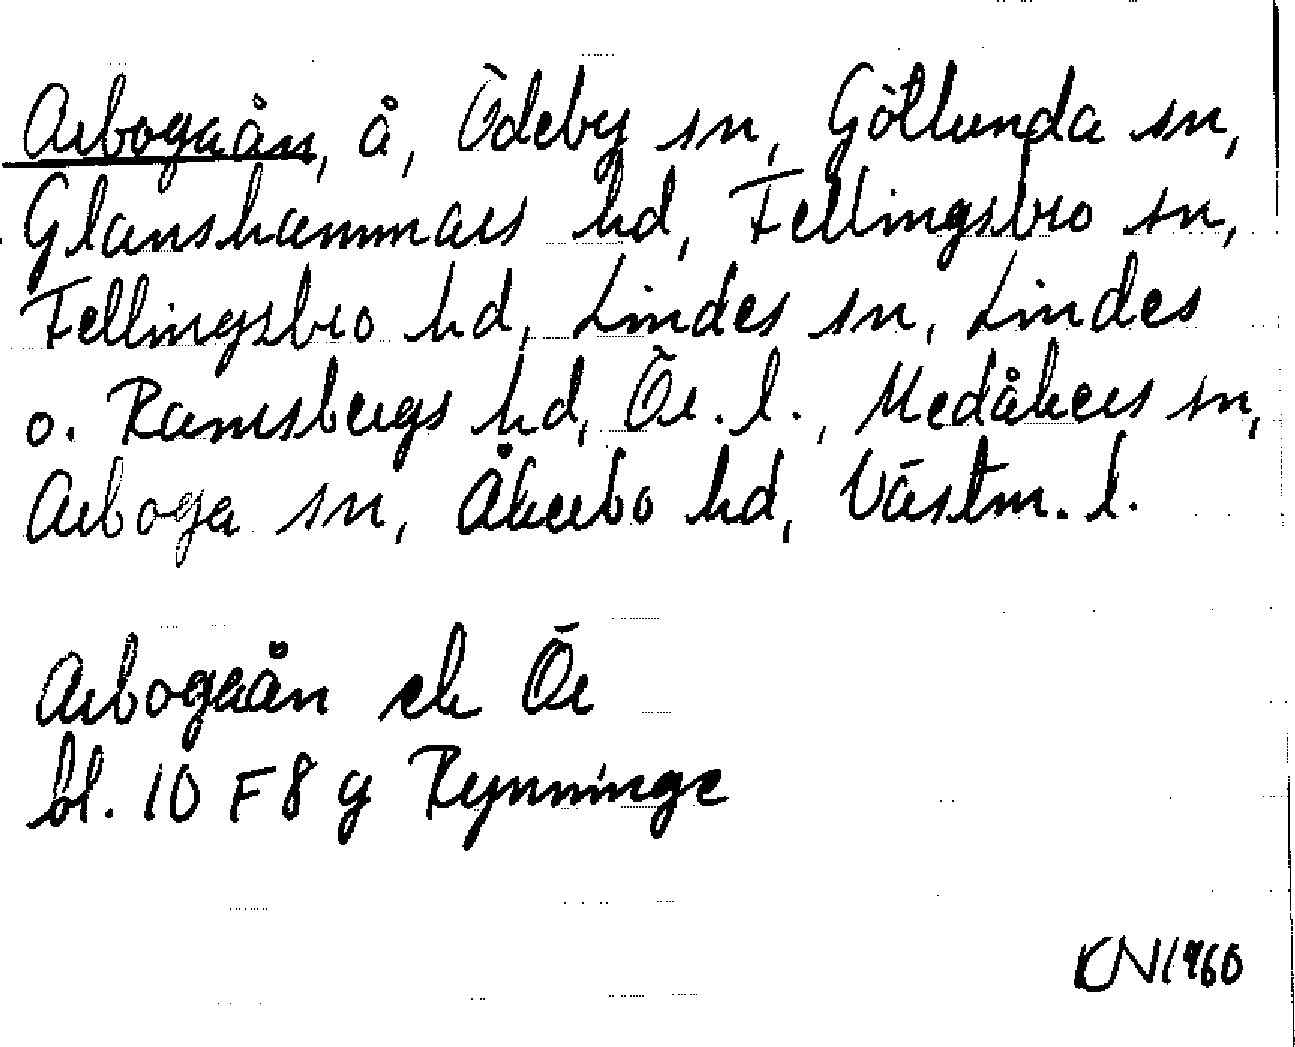 Arbogaån, å, Ödeby sn, Götlunda sn,
Glanshammars hd, Fellingsbro sn,
Fellingsbro hd, Lindes sn, Lindes
o. Ramsbergs hd, Ör. l., Medåkers sn,
Arboga sn, Åkerbo hd, Västm. l.
Arbogaån ek Ör
bl. 10 F 8 g Rynninge
KN 1960